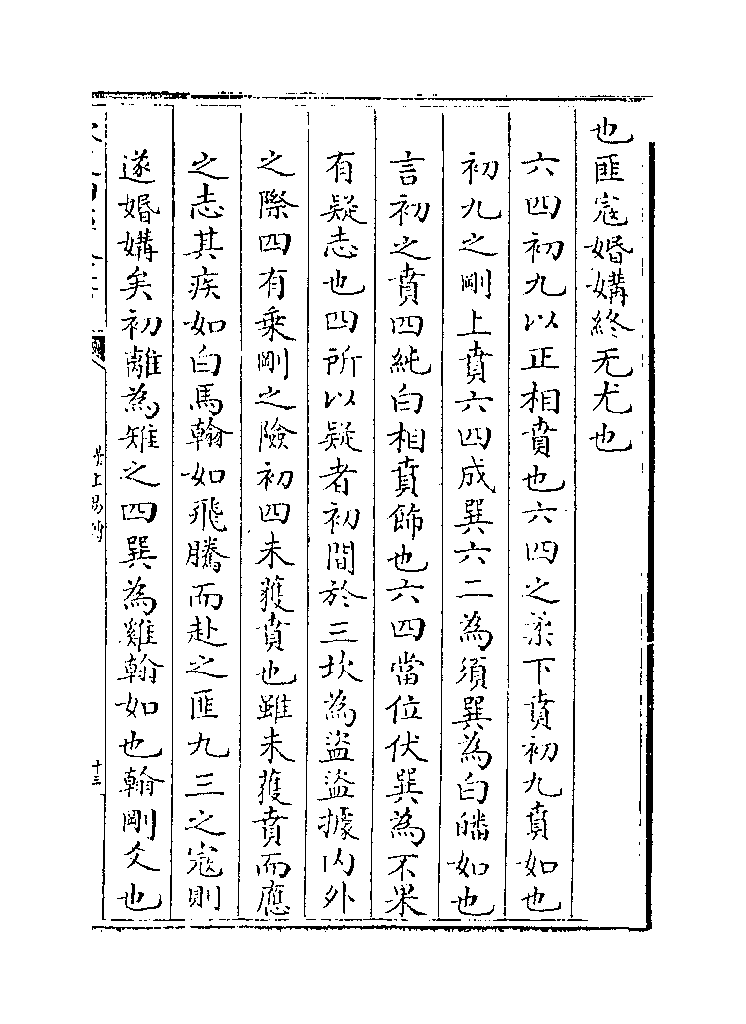 也匪寇婚媾終无尤也
六四初九以正相賁也六四之柔下賁初九賁如也
初九之剛上賁六四成巽六二為須巽為白皤如也
言初之賁四純白相賁飾也六四當位伏巽為不果
有疑志也四所以疑者初間於三坎為盜盜據内外
之際四有乗剛之險初四未獲賁也雖未獲賁而應
之志其疾如白馬翰如飛騰而赴之匪九三之寇則
遂婚媾矣初離為雉之四巽為雞翰如也翰剛爻也
十三